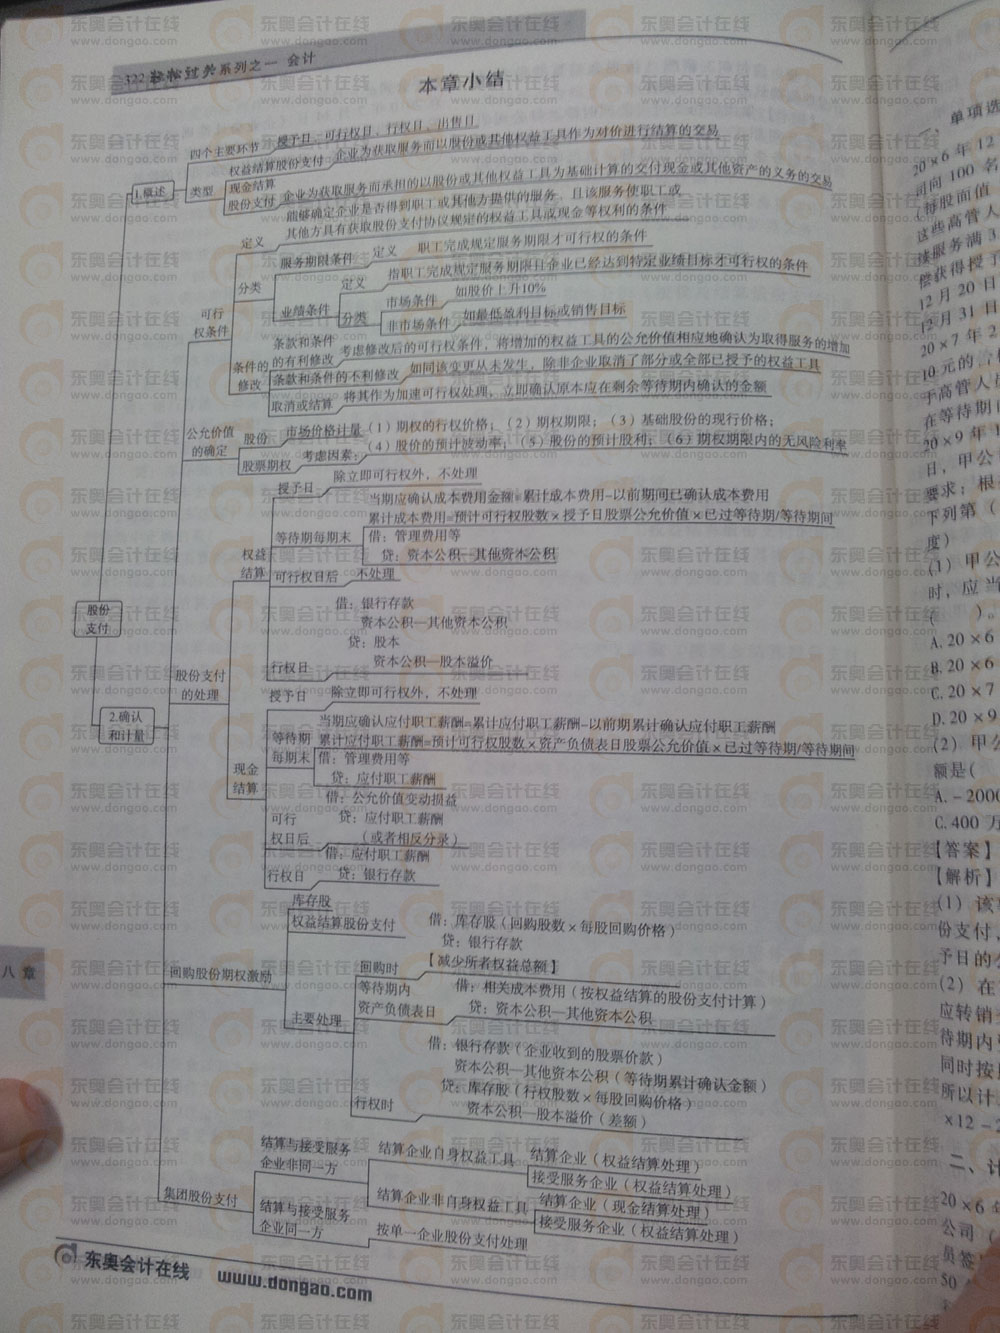 322 轻松过关系列之一 会计
本章小结
四个主要环节 授予日、可行权日、行权日、出售日
1.概述
类型
权益结算股份支付 企业为获取服务而以股份或其他权益工具作为对价进行结算的交易
现金结算
股份支付 企业为获取服务而承担的以股份或其他权益工具为基础计算的交付现金或其他资产的义务的交易
定义
能够确定企业是否得到职工或其他方提供的服务、且该服务使职工或
其他方具有获取股份支付协议规定的权益工具或现金等权利的条件
可行
权条件
分类
服务期限条件 定义 职工完成规定服务期限才可行权的条件
业绩条件
定义 指职工完成规定服务期限且企业已经达到特定业绩目标才可行权的条件
分类
市场条件 如股价上升10%
非市场条件 如最低盈利目标或销售目标
条件的
修改
条款和条件
的有利修改 考虑修改后的可行权条件，将增加的权益工具的公允价值相应地确认为取得服务的增加
条款和条件的不利修改 如同该变更从未发生，除非企业取消了部分或全部已授予的权益工具
取消或结算 将其作为加速可行权处理，立即确认原本应在剩余等待期内确认的金额
公允价值
的确定
股份 市场价格计量
股票期权 考虑因素：
（1）期权的行权价格；（2）期权期限；（3）基础股份的现行价格；
（4）股价的预计波动率；（5）股份的预计股利；（6）期权期限内的无风险利率
股份
支付
2.确认
和计量
股份支付
的处理
权益
结算
授予日 除立即可行权外，不处理
等待期每期末
当期应确认成本费用金额=累计成本费用-以前期间已确认成本费用
累计成本费用=预计可行权股数×授予日股票公允价值×已过等待期/等待期间
借：管理费用等
贷：资本公积—其他资本公积
可行权日后 不处理
行权日
借：银行存款
资本公积—其他资本公积
贷：股本
资本公积—股本溢价
现金
结算
授予日 除立即可行权外，不处理
等待期
每期末
当期应确认应付职工薪酬=累计应付职工薪酬-以前期累计确认应付职工薪酬
累计应付职工薪酬=预计可行权股数×资产负债表日股票公允价值×已过等待期/等待期间
借：管理费用等
贷：应付职工薪酬
可行
权日后
借：公允价值变动损益
贷：应付职工薪酬
（或者相反分录）
行权日
借：应付职工薪酬
贷：银行存款
回购股份期权激励
库存股
权益结算股份支付
主要处理
回购时
借：库存股（回购股数×每股回购价格）
贷：银行存款
【减少所者权益总额】
等待期内
资产负债表日
借：相关成本费用（按权益结算的股份支付计算）
贷：资本公积—其他资本公积
行权时
借：银行存款（企业收到的股票价款）
资本公积—其他资本公积（等待期累计确认金额）
贷：库存股（行权股数×每股回购价格）
资本公积—股本溢价（差额）
集团股份支付
结算与接受服务
企业非同一方
结算企业自身权益工具
结算企业（权益结算处理）
接受服务企业（权益结算处理）
结算企业非自身权益工具
结算企业（现金结算处理）
接受服务企业（权益结算处理）
结算与接受服务
企业同一方
按单一企业股份支付处理
八章
东奥会计在线
www.dongao.com
一、单项选
20×6年12
司向100名
（每股面值
这些高管人
续服务满3
偿获得授予
12月20日
12月31日
20×7年2
10元的
于高管人
在等待期
20×9年1
日，甲公
要求：根
下列第（
度）
(1) 甲公
时，应当
（ ）。
A.20×6
B.20×6
C.20×7
D.20×9
(2) 甲公
额是（
A.-2000
C.400万
【答案】
【解析】
(1) 该
份支付、
予日的公
(2) 在
应转销
待期内
同时按
所以计
×12-
二、计
20×6年
公司（
员签
50